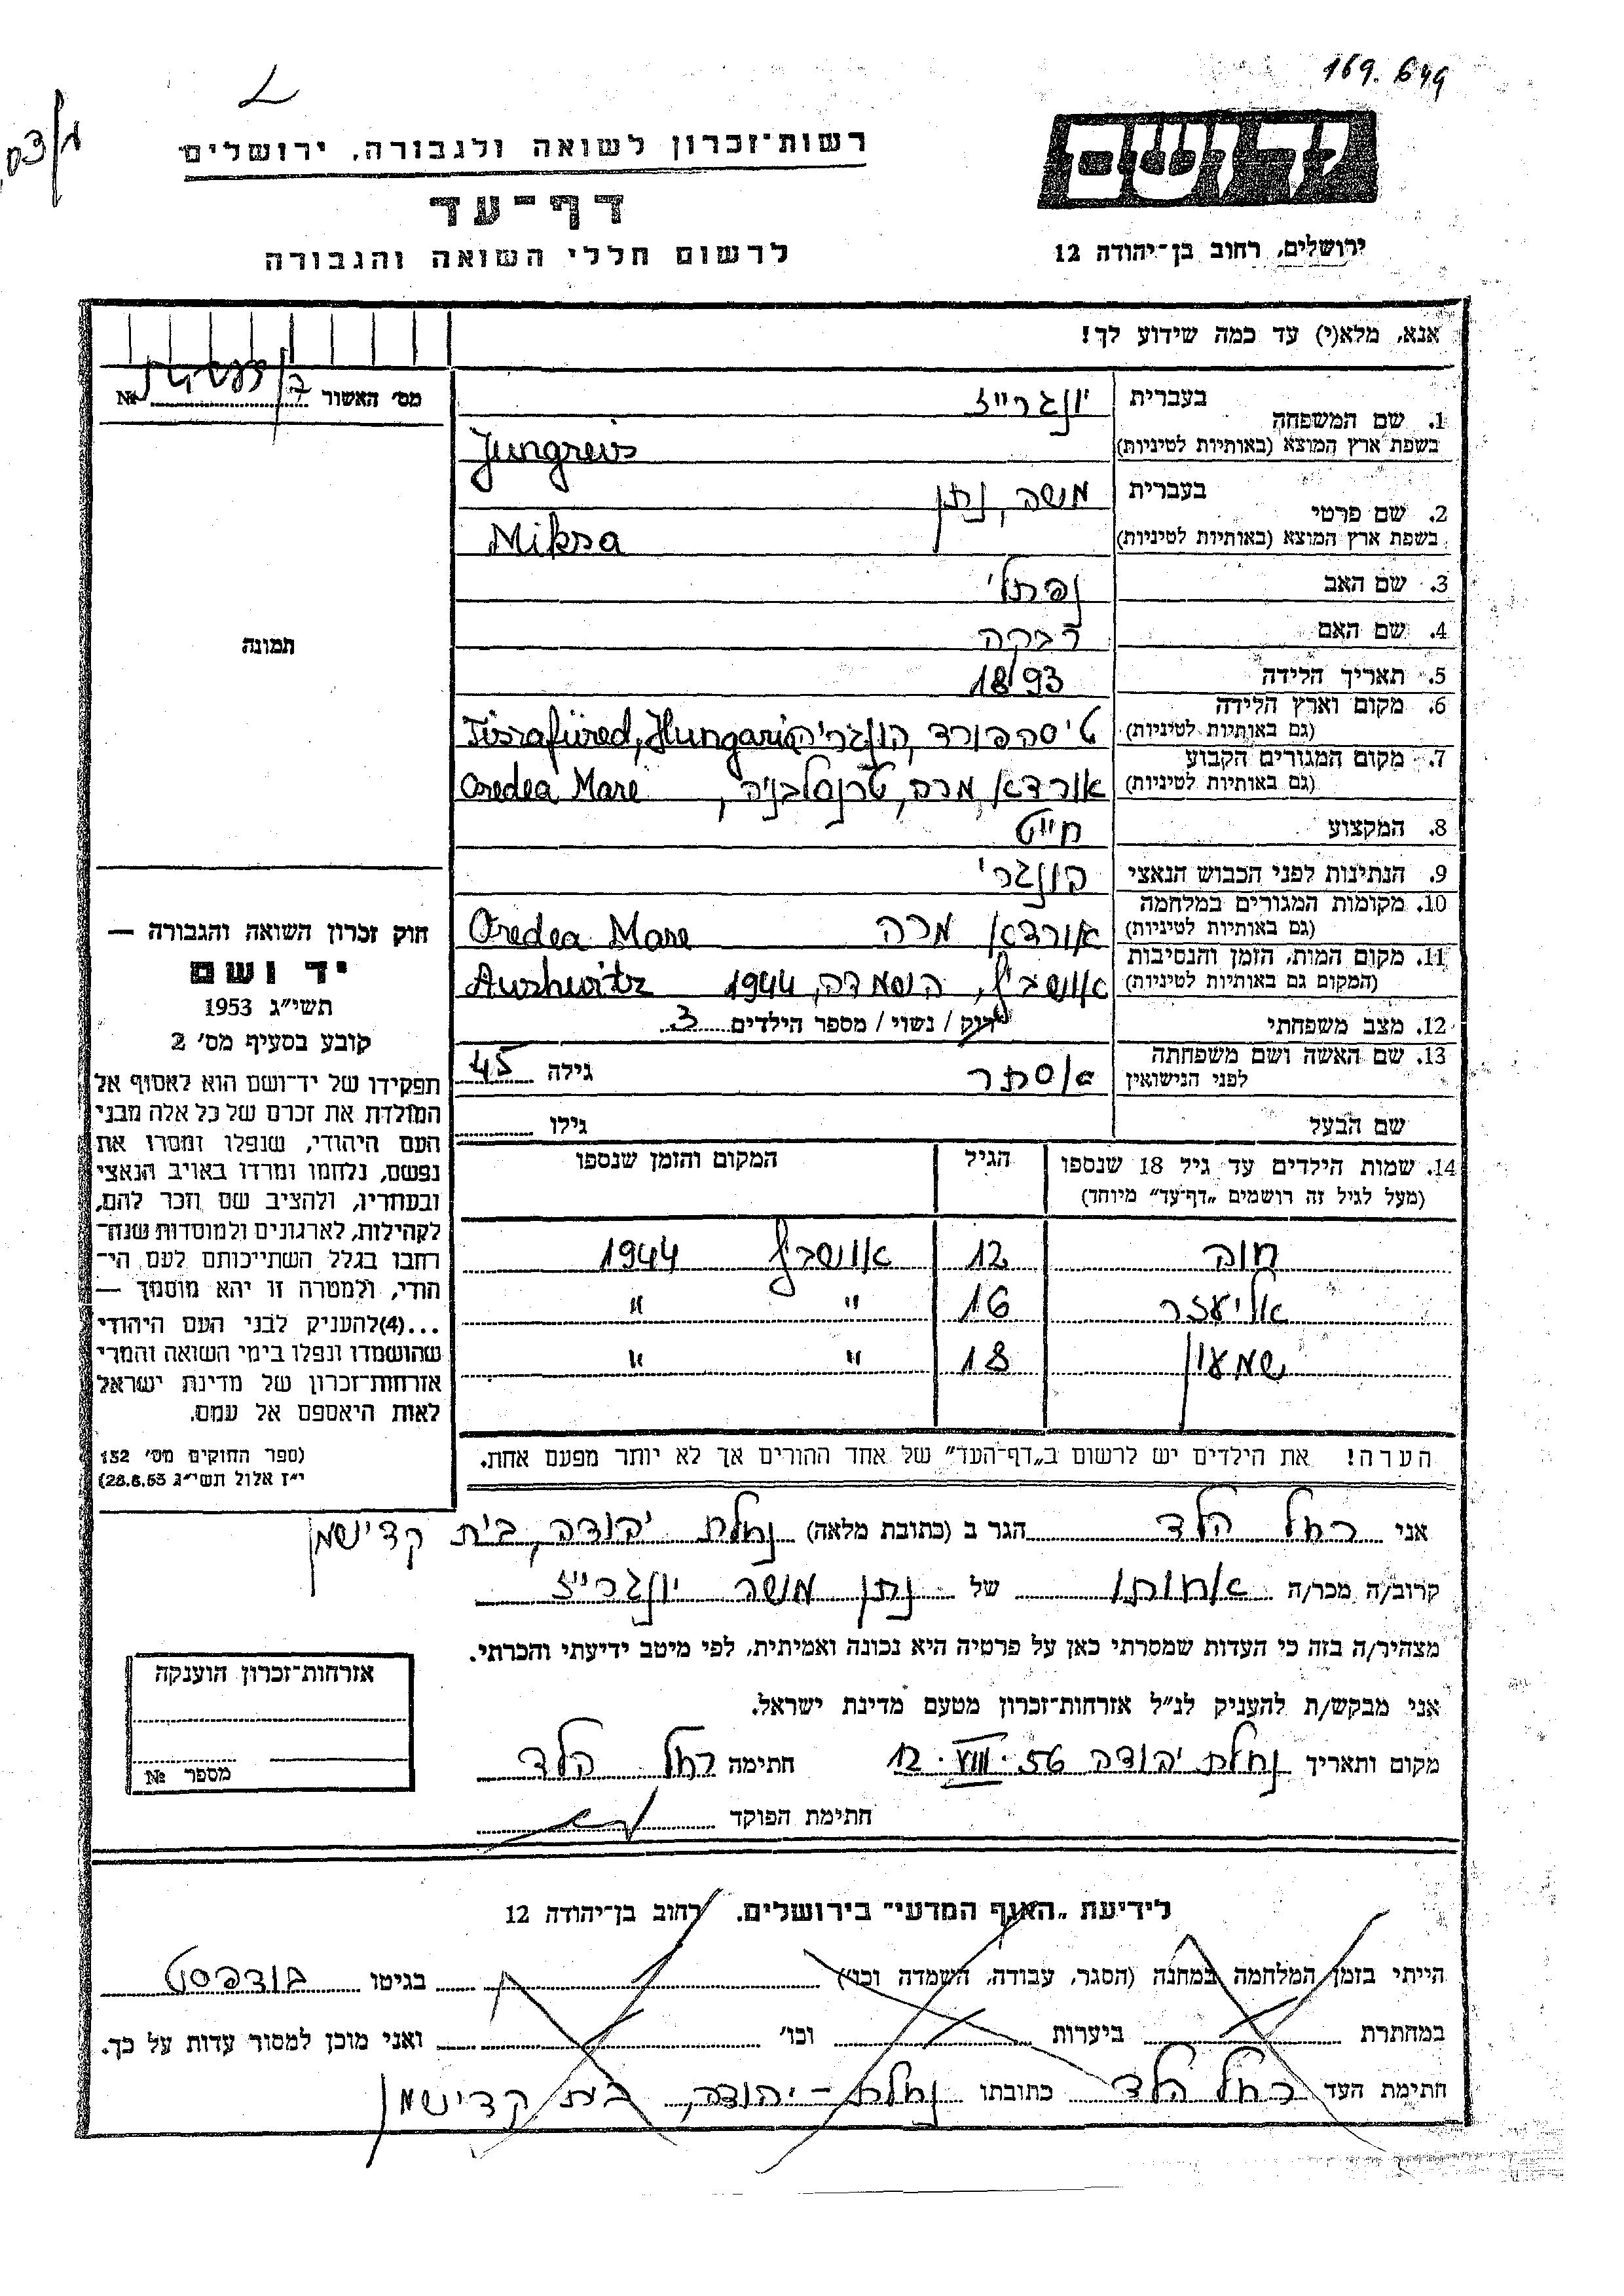 169.649
רשות־זכרון לשואה ולגבורה, ירושלים
דף־עד
לרשום חללי השואה והגבורה
יד ושם
ירושלים, רחוב בן־יהודה 12
אנא, מלא(י) עד כמה שידוע לך!
מס' האשור № 
תמונה
1. שם המשפחה בעברית יונגרייז
בשפת ארץ המוצא (באותיות לטיניות) Jungreis
2. שם פרטי בעברית משה, נתן
בשפת ארץ המוצא (באותיות לטיניות) Miksa
3. שם האב נפתלי
4. שם האם רבקה
5. תאריך הלידה 1893
6. מקום וארץ הלידה (גם באותיות לטיניות) טיסהפורד, הונגריה Tiszafüred, Hungaria
7. מקום המגורים הקבוע (גם באותיות לטיניות) אורדאו מרה, טרנסלבניה, Oredea Mare
8. המקצוע חייט
9. הנתינות לפני הכבוש הנאצי הונגרי
10. מקומות המגורים במלחמה (גם באותיות לטיניות) אורדאו מרה Oredea Mare
11. מקום המות, הזמן והנסיבות (המקום גם באותיות לטיניות) אושביץ, השמדה, 1944 Aushwitz
12. מצב משפחתי רוק / נשוי / מספר הילדים 3
13. שם האשה ושם משפחתה לפני הנישואין אסתר גילה 45
שם הבעל גילו
14. שמות הילדים עד גיל 18 שנספו (מעל לגיל זה רושמים „דף־עד" מיוחד) הגיל המקום והזמן שנספו
חוה 12 אושביץ 1944
אליעזר 16 " "
שמעון 18 " "
הערה! את הילדים יש לרשום ב„דף־העד" של אחד ההורים אך לא יותר מפעם אחת.
חוק זכרון השואה והגבורה —
יד ושם
תשי"ג 1953
קובע בסעיף מס' 2
תפקידו של יד־ושם הוא לאסוף אל
המולדת את זכרם של כל אלה מבני
העם היהודי, שנפלו ומסרו את
נפשם, נלחמו ומרדו באויב הנאצי
ובעוזריו, ולהציב שם וזכר להם,
לקהילות, לארגונים ולמוסדות שנח־
רחבו בגלל השתייכותם לעם הי־
הודי, ולמטרה זו יהא מוסמך —
...(4) להעניק לבני העם היהודי
שהושמדו ונפלו בימי השואה והמרי
אזרחות־זכרון של מדינת ישראל
לאות היאספם אל עמם.
(ספר החוקים מס' 132
י"ז אלול תשי"ג 28.8.53)
אני רחל הלד הגר ב (כתובת מלאה) נחלת יהודה, בית קדישמן
קרוב/ה מכר/ה אחותו של נתן משה יונגרייז
מצהיר/ה בזה כי העדות שמסרתי כאן על פרטיה היא נכונה ואמיתית, לפי מיטב ידיעתי והכרתי.
אני מבקש/ת להעניק לנ"ל אזרחות־זכרון מטעם מדינת ישראל.
מקום ותאריך נחלת יהודה 12.VIII.56 חתימה רחל הלד
חתימת הפוקד
אזרחות־זכרון הוענקה
מספר №
לידיעת „האגף המדעי" בירושלים. רחוב בן־יהודה 12
הייתי בזמן המלחמה במחנה (הסגר, עבודה, השמדה וכו') בגיטו בודפסט
במחתרת ביערות וכו' ואני מוכן למסור עדות על כך.
חתימת העד רחל הלד כתובתו נחלת - יהודה, בית קדישמן